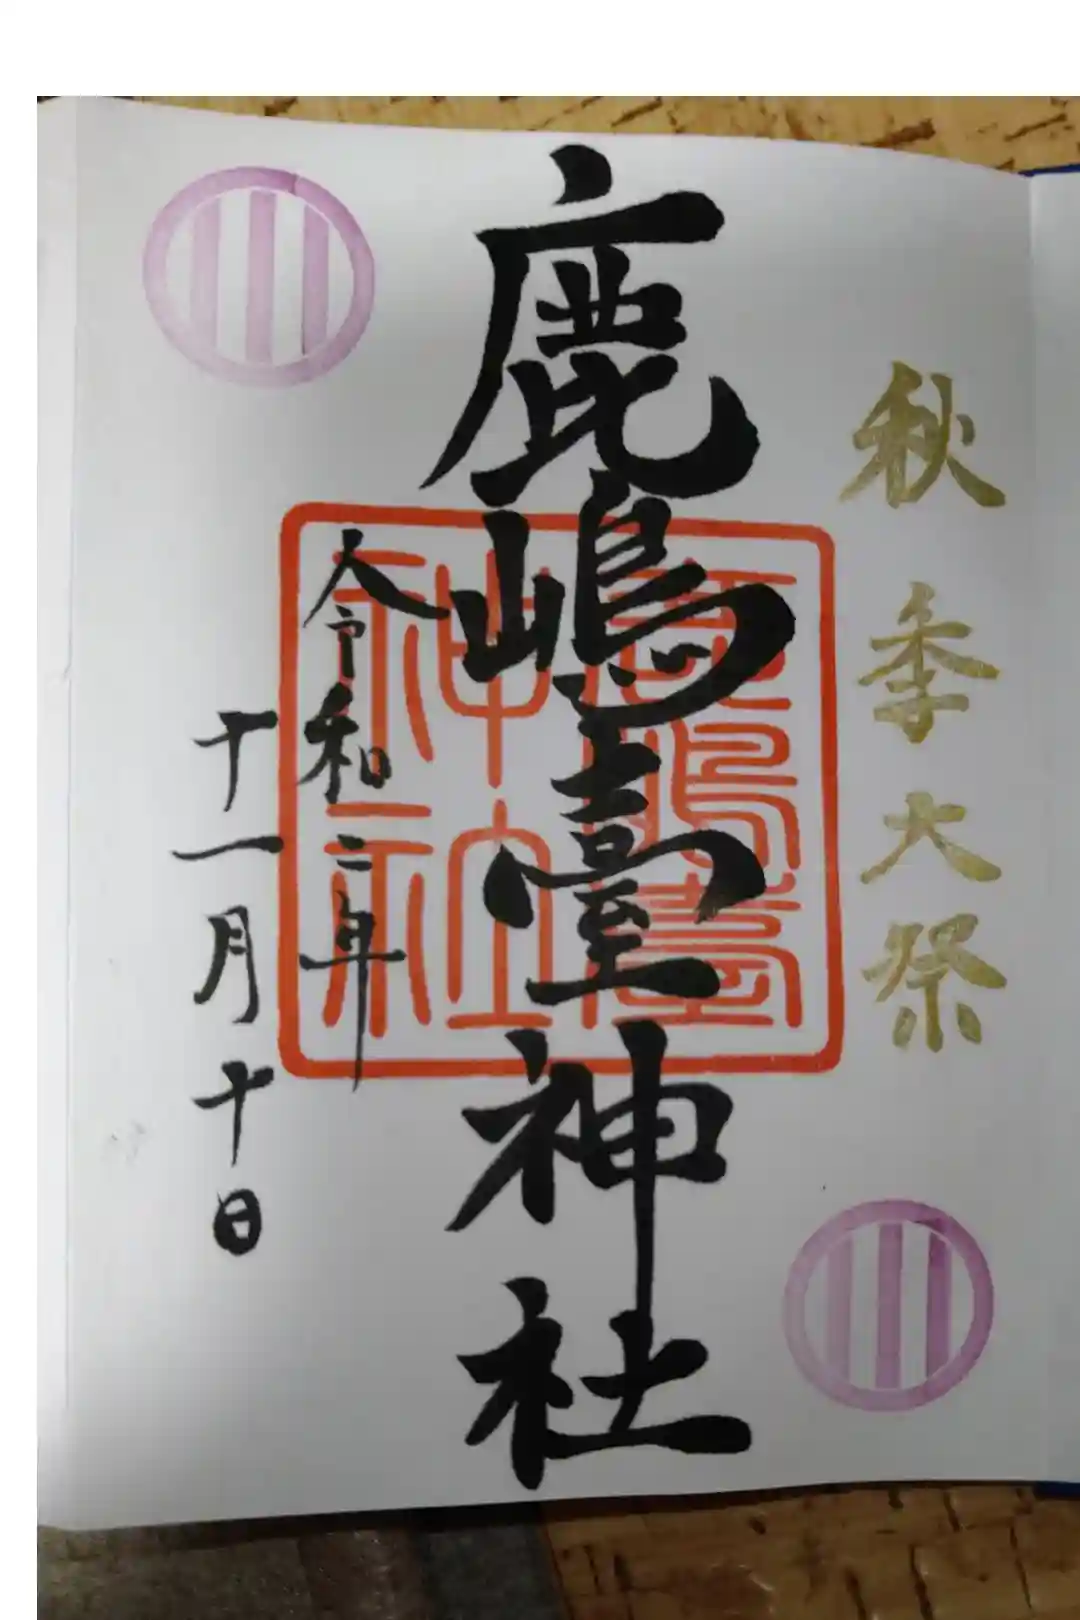 秋季大祭
鹿嶋臺神社
鹿嶋臺
神社
令和二年
十一月十日